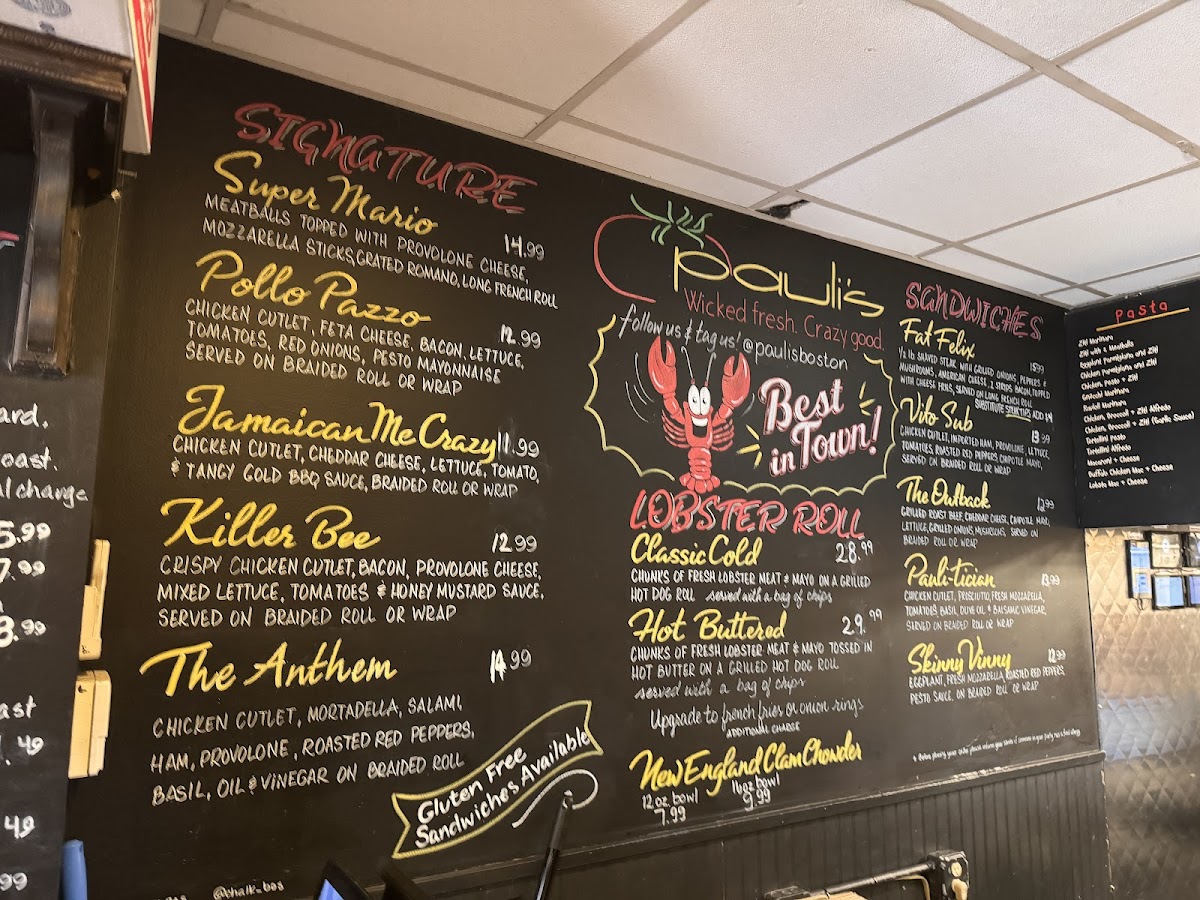 ard.
oast.
al charge
5.99
7.99
8.99
ast
.49
49
99
SIGNATURE
Super Mario 14.99
MEATBALLS TOPPED WITH PROVOLONE CHEESE,
MOZZARELLA STICKS, GRATED ROMANO, LONG FRENCH ROLL
Pollo Pazzo 12.99
CHICKEN CUTLET, FETA CHEESE, BACON, LETTUCE,
TOMATOES, RED ONIONS, PESTO MAYONNAISE
SERVED ON BRAIDED ROLL OR WRAP
Jamaican Me Crazy 11.99
CHICKEN CUTLET, CHEDDAR CHEESE, LETTUCE, TOMATO,
& TANGY GOLD BBQ SAUCE, BRAIDED ROLL OR WRAP
Killer Bee 12.99
CRISPY CHICKEN CUTLET, BACON, PROVOLONE CHEESE,
MIXED LETTUCE, TOMATOES & HONEY MUSTARD SAUCE,
SERVED ON BRAIDED ROLL OR WRAP
The Anthem 14.99
CHICKEN CUTLET, MORTADELLA, SALAMI,
HAM, PROVOLONE, ROASTED RED PEPPERS,
BASIL, OIL & VINEGAR ON BRAIDED ROLL
Gluten Free
Sandwiches Available
@chalk_bos
pauli's
Wicked fresh. Crazy good.
follow us & tag us! @paulisboston
Best
in Town!
LOBSTER ROLL
Classic Cold 28.99
CHUNKS OF FRESH LOBSTER MEAT & MAYO ON A GRILLED
HOT DOG ROLL served with a bag of chips
Hot Buttered 29.99
CHUNKS OF FRESH LOBSTER MEAT & MAYO TOSSED IN
HOT BUTTER ON A GRILLED HOT DOG ROLL
served with a bag of chips
Upgrade to french fries or onion rings
ADDITIONAL CHARGE
New England Clam Chowder
12 oz bowl 16 oz bowl
7.99 9.99
SANDWICHES
Fat Felix 15.99
1/2 lb SHAVED STEAK WITH GRILLED ONIONS, PEPPERS &
MUSHROOMS, AMERICAN CHEESE, 2 STRIPS BACON, TOPPED
WITH CHEESE FRIES, SERVED ON LONG FRENCH ROLL
SUBSTITUTE STEAK TIPS ADD $4
Vito Sub 13.99
CHICKEN CUTLET, IMPORTED HAM, PROVOLONE, LETTUCE,
TOMATOES, ROASTED RED PEPPERS, CHIPOTLE MAYO,
SERVED ON BRAIDED ROLL OR WRAP
The Outback 12.99
GRILLED ROAST BEEF, CHEDDAR CHEESE, CHIPOTLE MAYO,
LETTUCE, GRILLED ONIONS, MUSHROOMS, SERVED ON
BRAIDED ROLL OR WRAP
Pauli-tician 13.99
CHICKEN CUTLET, PROSCIUTTO, FRESH MOZZARELLA,
TOMATOES BASIL, OLIVE OIL & BALSAMIC VINEGAR,
SERVED ON BRAIDED ROLL OR WRAP
Skinny Vinny 12.99
EGGPLANT, FRESH MOZZARELLA, ROASTED RED PEPPERS,
PESTO SAUCE, ON BRAIDED ROLL OR WRAP
* Before placing your order please inform your server if someone in your party has a food allergy
Pasta
Ziti Marinara
Ziti with 2 Meatballs
Eggplant Parmigiana and Ziti
Chicken Parmigiana and Ziti
Chicken, Pesto + Ziti
Gnocchi Marinara
Ravioli Marinara
Chicken, Broccoli + Ziti Alfredo
Chicken, Broccoli + Ziti (Garlic Sauce)
Tortellini Pesto
Tortellini Alfredo
Macaroni + Cheese
Buffalo Chicken Mac + Cheese
Lobster Mac + Cheese